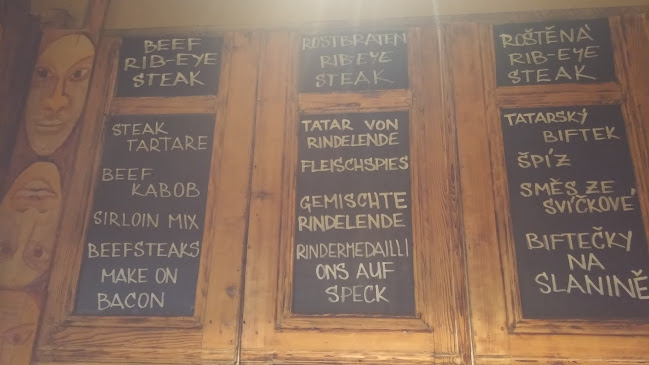 BEEF
RIB-EYE
STEAK
STEAK
TARTARE
BEEF
KABOB
SIRLOIN MIX
BEEFSTEAKS
MAKE ON
BACON
ROSTBRATEN
RIB-EYE
STEAK
TATAR VON
RINDELENDE
FLEISCHSPIES
GEMISCHTE
RINDELENDE
RINDERMEDAILLI
ONS AUF
SPECK
ROŠTĚNÁ
RIB-EYE
STEAK
TATARSKÝ
BIFTEK
ŠPÍZ
SMĚS ZE
SVÍČKOVÉ
BIFTEČKY
NA
SLANINĚ